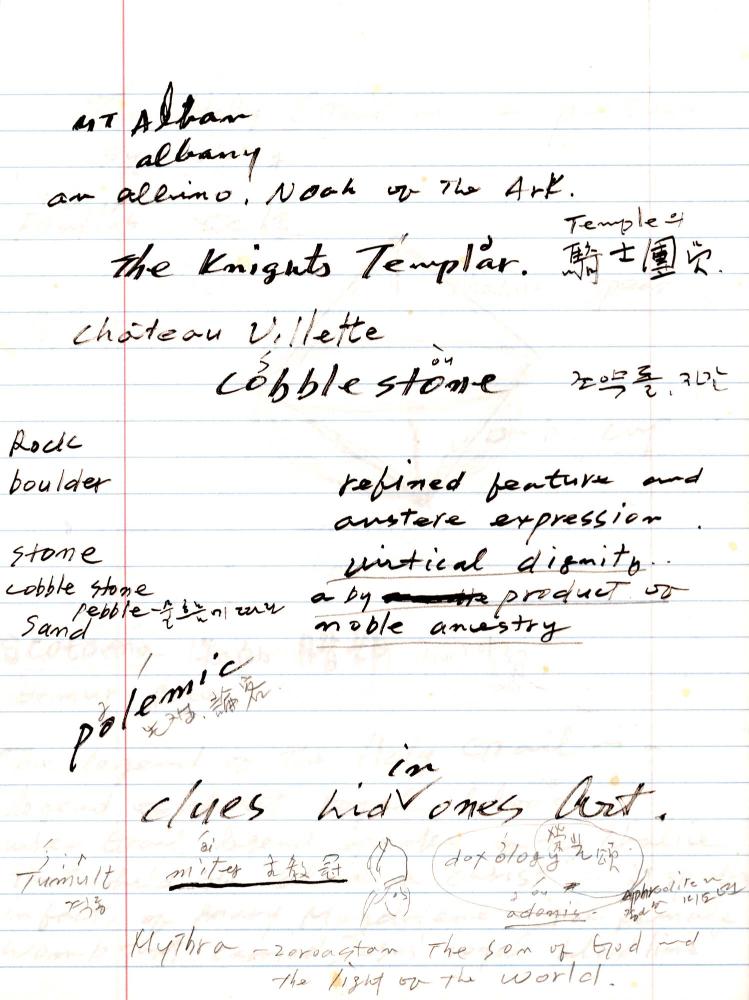 MT Alban
albany
an albino. Noah of The Ark.
Temple의
The Knights Templar. 騎士團员.
château Villette
cobble stone 조약돌, 자갈
Rock
boulder
refined feature and
austere expression.
stone
virtical dignity..
cobble stone
a by product of
pebble
Sand
noble ancestry
polemic
논쟁, 論客.
in
clues hid ones Art.
Tumult
mitey 主教冠
doxology 榮光頌
adonis.
Aphrodite
Mythra - Zoroastan The son of God and
the light of the world.